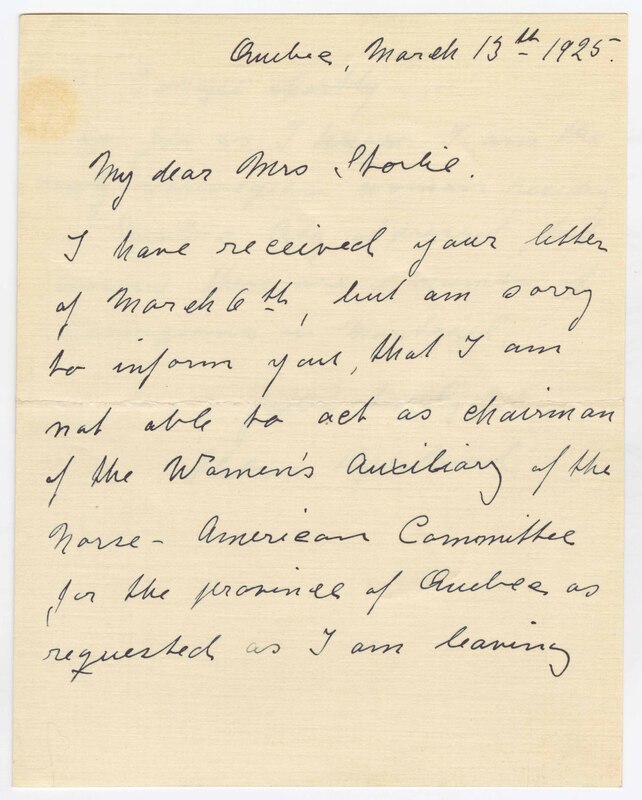 Quebec, March 13th 1925.
My dear Mrs Storlie.
I have received your letter
of March 6th, but am sorry
to inform you, that I am
not able to act as chairman
of the Women's Auxiliary of the
Norse-American Committee
for the province of Quebec as
requested as I am leaving